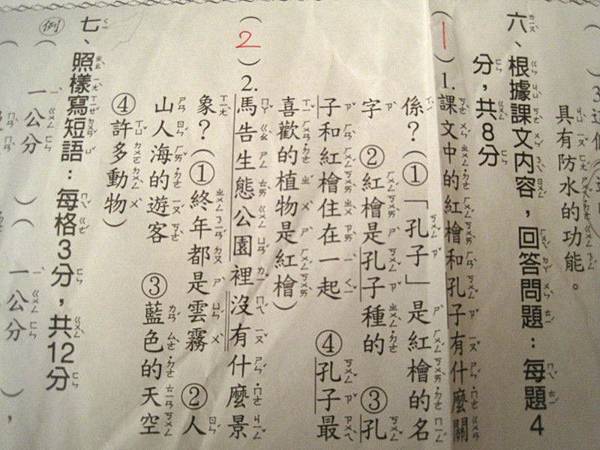 具有防水的功能。
六、根據課文內容，回答問題：每題4
分，共8分
(1)1.課文中的紅檜和孔子有什麼關
係？(①「孔子」是紅檜的名
字 ②紅檜是孔子種的 ③孔
子和紅檜住在一起 ④孔子最
喜歡的植物是紅檜)
(2)2.馬告生態公園裡沒有什麼景
象？(①終年都是雲霧 ②人
山人海的遊客 ③藍色的天空
④許多動物)
七、照樣寫短語：每格3分，共12分
例 一公分 一公分，